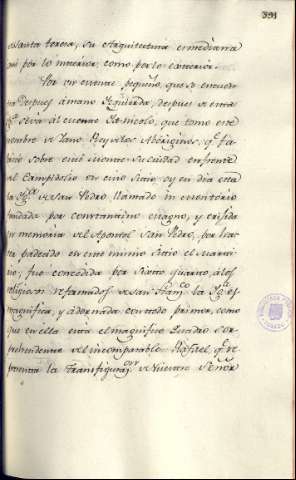 391
de Santa teresa; su Arquitectura es mediana
asi por lo interior, como por lo exterior.
Por un cuentre pequeño, que se encuen-
tra despues á mano Izquierda, despues de una
se Janicolo, que tomo este
nombre de Jano Rey de los Aborigines, qe. fa-
bricó sobre este su Ciudad enfrente
al Campidolio en cuio sitio oy en dia esta
la Yga. de San Pedro llamado in Montorio
fundada por Constantino magno, y erijida
en memoria del Apostol San Pedro, por haver
padecido en este mismo sitio el marti-
rio; fue concedida por Sixto quarto, á los
religiosos reformados de San Franco. la Yga. es
magnifica, y adornada con todo primor, como
que en ella está el magnifico Quadro sor-
prehendente del incomparable Rafael, qe. re-
presenta la transfiguraon. de Nuestro Señor